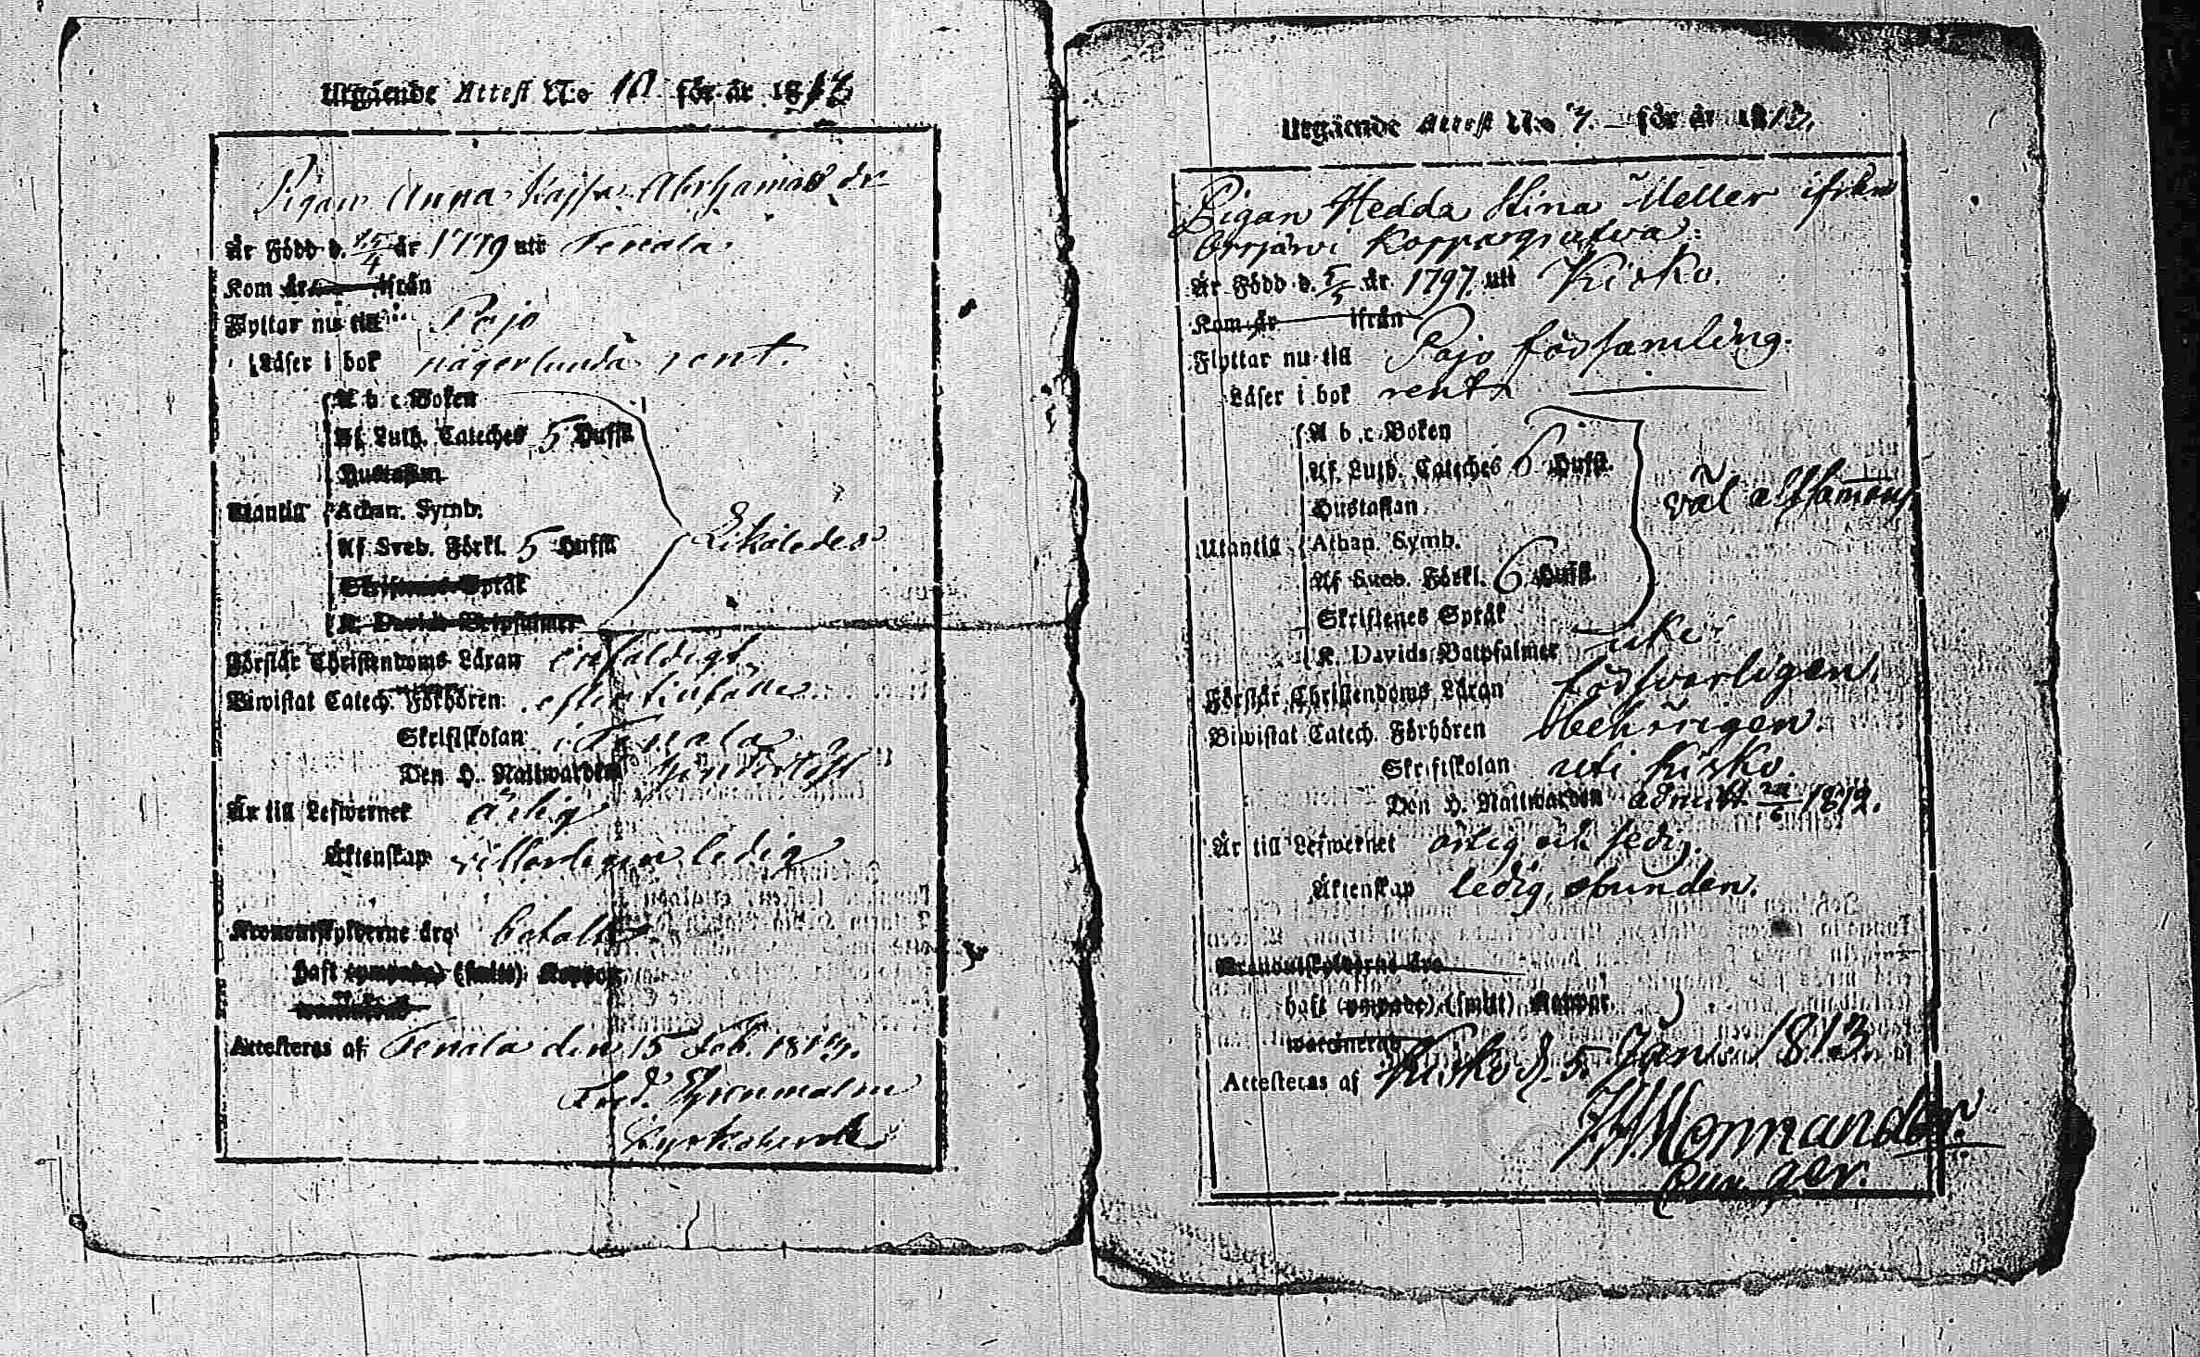 Utgående Attest N:o 10 för år 1813
Pigan Anna Kajsa Abrahamsdr
Är Född d. 15/4 år 1779 uti Tenala.
Kom år ifrån
Flyttar nu till Pojo
Läser i bok någorlunda rent.
A b c Boken
Af Luth. Cateches 5 Hufst.
Hustaflan
Utantill Athan. Symb.
Af Sveb. Förkl. 5 Hufst.
Likaledes
Skriftenes Språk
K. Davids Botpsalmer
Förstår Christendoms Läran enfaldigt
Biwistat Catech. Förhören
Skriftskolan i Tenala
Den H. Nattwarden
Är till Lefwernet ärlig
Äktenskap ledig
Kronoutskylderne äro betalte
haft (ympade) (smitt) Koppor
Attesteras af Tenala den 15 Feb. 1813.
Kyrkoherde
Utgående Attest N:o 7. för år 1813.
Pigan Hedda Stina Meller ifrån
Orrjärvi Koppargrufva.
Är Född d. 5/5 år 1797 uti Kisko.
Kom år ifrån
Flyttar nu till Pojo församling.
Läser i bok rent
A b c Boken
Af Luth. Cateches 6 Hufst.
väl alsammans
Hustaflan
Utantill Athan. Symb.
Af Sveb. Förkl. 6 Hufst.
Skriftenes Språk
K. Davids Botpsalmer icke
Förstår Christendoms Läran försvarligen.
Biwistat Catech. Förhören behörigen.
Skriftskolan uti Kisko.
Den H. Nattwarden admitt. 1812.
Är till Lefwernet ärlig och sedig.
Äktenskap ledig, obunden.
Kronoutskylderne äro
haft (ympade) (smitt) Koppor.
Attesteras af Kisko d. 5 Jan. 1813.